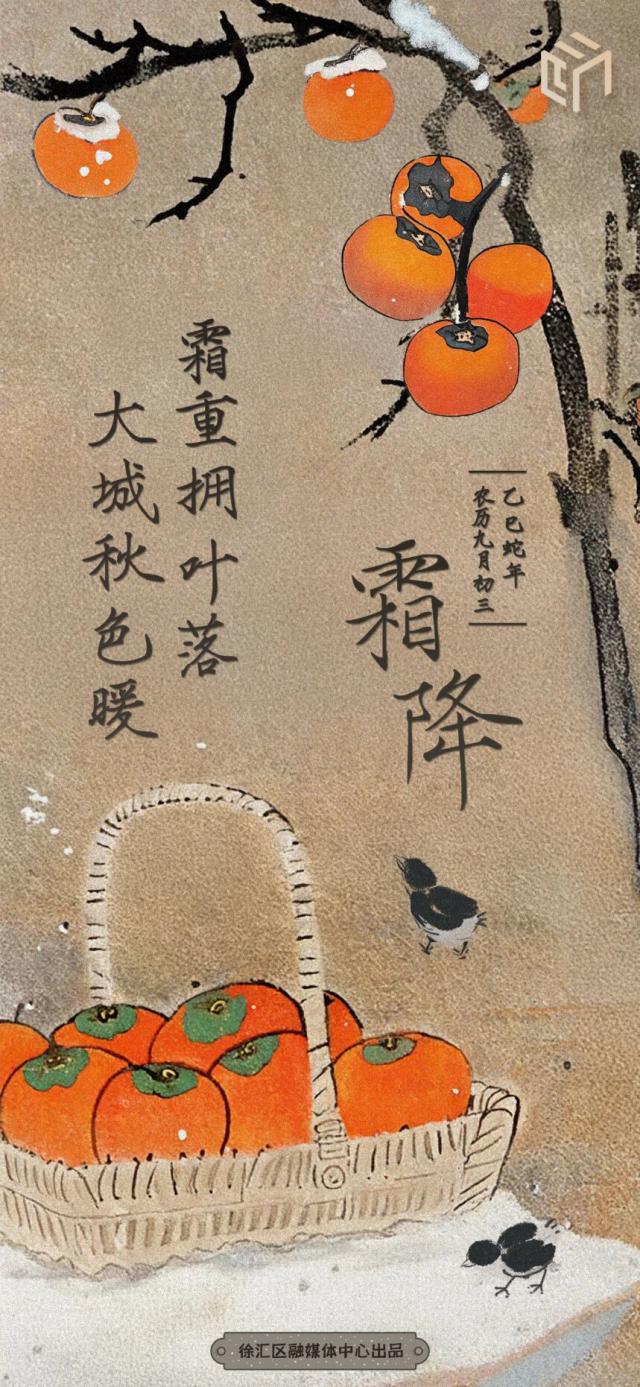 乙巳蛇年
农历九月初三
霜降
霜重拥叶落
大城秋色暖
徐汇区融媒体中心出品